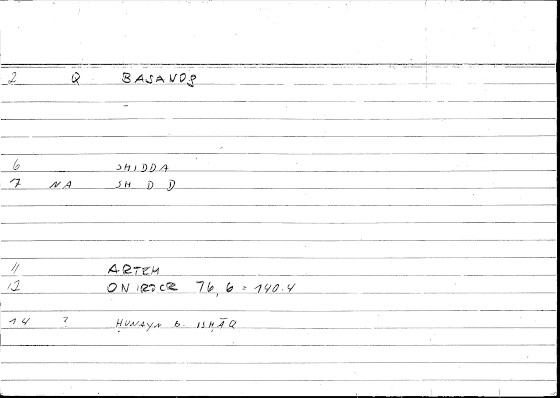 2 Q BASANOS
6 SHIDDA
7 NA SH D D
11 ARTEM
12 ONIROCR 76, 6 = 140.4
14 ? ḤUNAYN B. ISḤĀQ